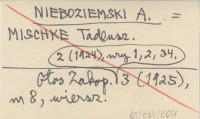 NIEBOZIEMSKI A. =
MISCHKE Tadeusz.
2 (1924), nry 1, 2, 34.
Głos Zakop. 3 (1925),
nr 8, wiersz.